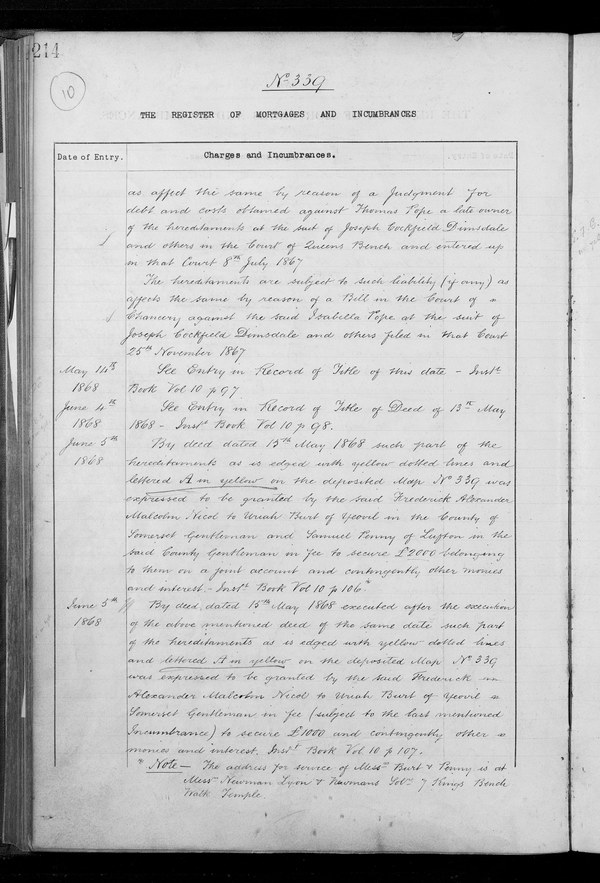 214
10
No 339
THE REGISTER OF MORTGAGES AND INCUMBRANCES
Date of Entry.
Charges and Incumbrances.
as affect the same by reason of a Judgment for
debt and costs obtained against Thomas Pope a late owner
of the hereditaments at the suit of Joseph Cockfield Dimsdale
and others in the Court of Queens Bench and entered up
in that Court 8th July 1867
The hereditaments are subject to such liability (if any) as
affects the same by reason of a Bill in the Court of
Chancery against the said Isabella Pope at the suit of
Joseph Cockfield Dimsdale and others filed in that Court
25th November 1867
May 14th 1868
See Entry in Record of Title of this date - Instt
Book Vol 10 p 97.
June 4th 1868
See Entry in Record of Title of Deed of 13th May
1868 - Instt Book Vol 10 p 98.
June 5th 1868
By deed dated 15th May 1868 such part of the
hereditaments as is edged with yellow dotted lines and
lettered A in yellow on the deposited Map No 339 was
expressed to be granted by the said Frederick Alexander
Malcolm Nicol to Uriah Burt of Yeovil in the County of
Somerset Gentleman and Samuel Penny of Lufton in the
said County Gentleman in fee to secure £2000 belonging
to them on a joint account and contingently other monies
and interest - Instt Book Vol 10 p 106 *
June 5th 1868
By deed dated 15th May 1868 executed after the execution
of the above mentioned deed of the same date such part
of the hereditaments as is edged with yellow dotted lines
and lettered A in yellow on the deposited Map No 339
was expressed to be granted by the said Frederick
Alexander Malcolm Nicol to Uriah Burt of Yeovil
Somerset Gentleman in fee (subject to the last mentioned
Incumbrance) to secure £1000 and contingently other
monies and interest. Instt Book Vol 10 p 107.
* Note - The address for service of Messrs Burt & Penny is at
Messrs Newman Lyon & Newmans 7 Kings Bench
Walk Temple